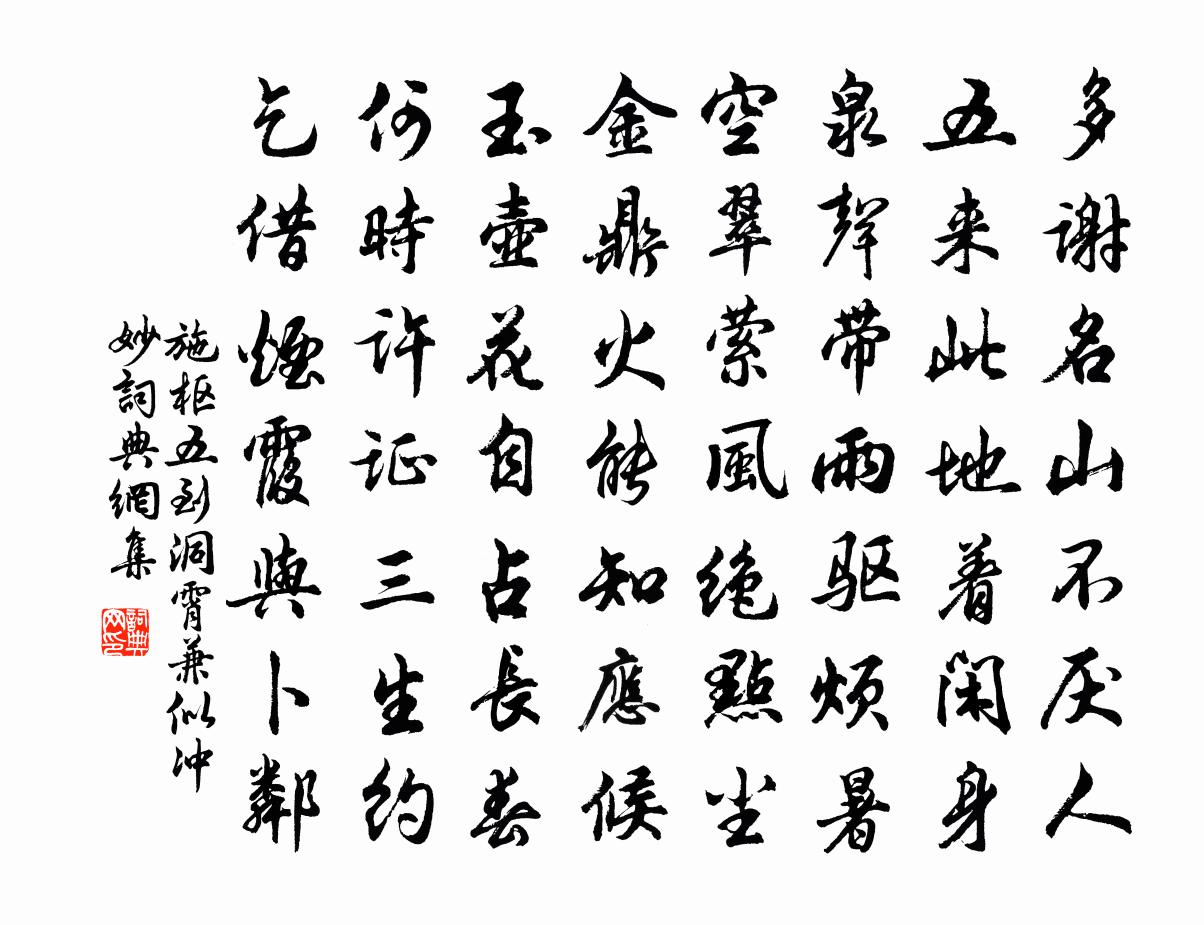 多謝名山不厌人
五来此地着闲身
泉聲带雨驱烦暑
空翠萦風絶點尘
金鼎火能知應候
玉壺花自占長春
何時許证三生約
乞借煙霞與卜鄰
施枢五到洞霄兼似冲
妙詞典網集
詞典网印